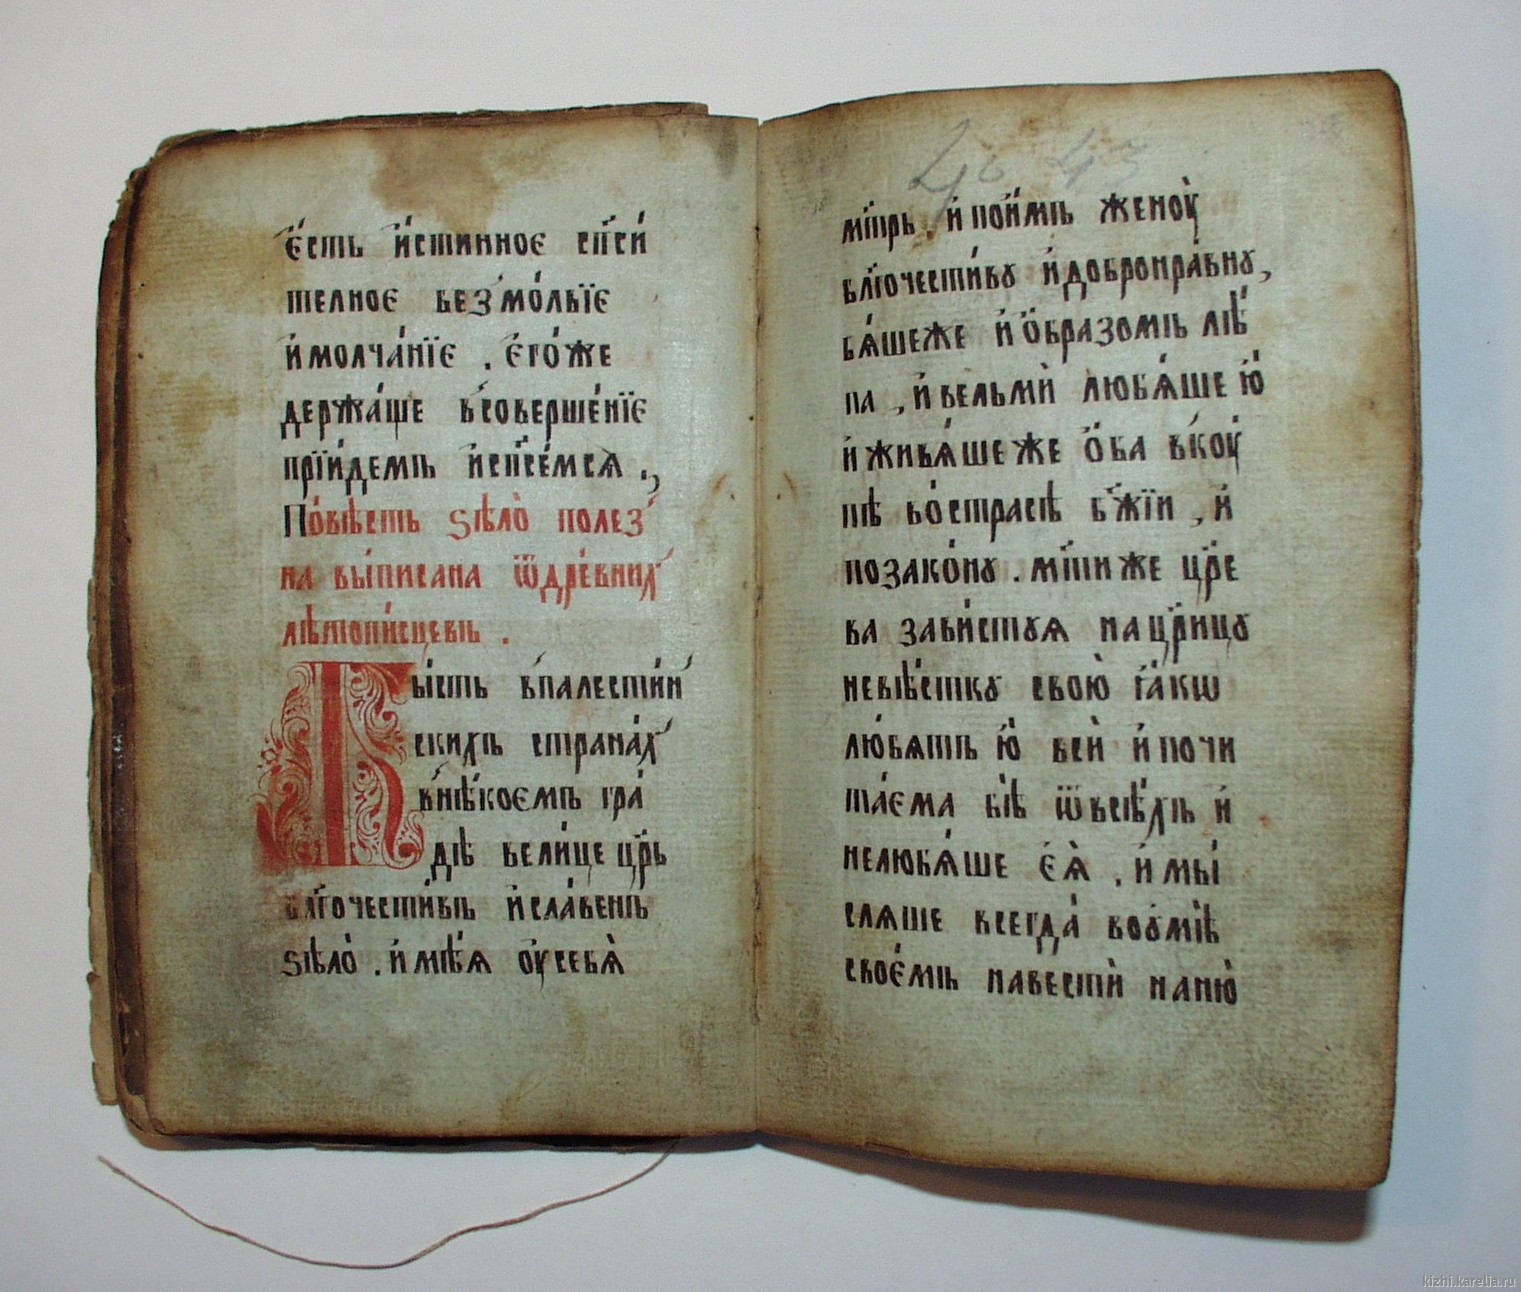 є҆́сть и҆́стинноє сп҃си́
телноє безмо́лвїє
и҆молча́нїє . є҆го́же
держа́ще в̾соверше́нїє
прїи́демъ и҆сп҃се́мсѧ .,
По́вѣсть ѕѣло̀ полез
на вы́писана ѿдре́вних̾
лѣтопи́сцевъ .
Бы́сть в̾палести́н̾
скихъ страна́х̾
в̾нѣ́коємъ гра́
дѣ вели́це цр҃ь
бл҃гочести́въ и҆сла́венъ
ѕѣло̀ . и҆мѣ́ѧ ᲂу҆себѧ̀
мт҃рь . и҆ пои́мъ женоу̀
бл҃гочести́вꙋ и҆добронра́внꙋ,
бѧ́шеже и҆ ѻ҆́бразомъ лѣ́
па , и҆ вельмѝ любѧ́ше ю҆̀
и҆ живѧ́ше же ѻ҆́ба в̾коу́
пѣ во́страсѣ бж҃їи , и҆
позако́нꙋ . мт҃и же цр҃е
ва зави́стꙋѧ нацр҃ицꙋ
невѣ́сткꙋ свою̀ ꙗ҆́кѡ
лю́бѧтъ ю҆̀ всѝ и҆ почи
та́єма бѣ̀ ѿвсѣ́хъ и҆
нелюбѧ́ше є҆ѧ̀ , и҆ мы́
слѧше всегда̀ воꙋмѣ̀
своє́мъ навестѝ наню̀
43
kizhi.karelia.ru